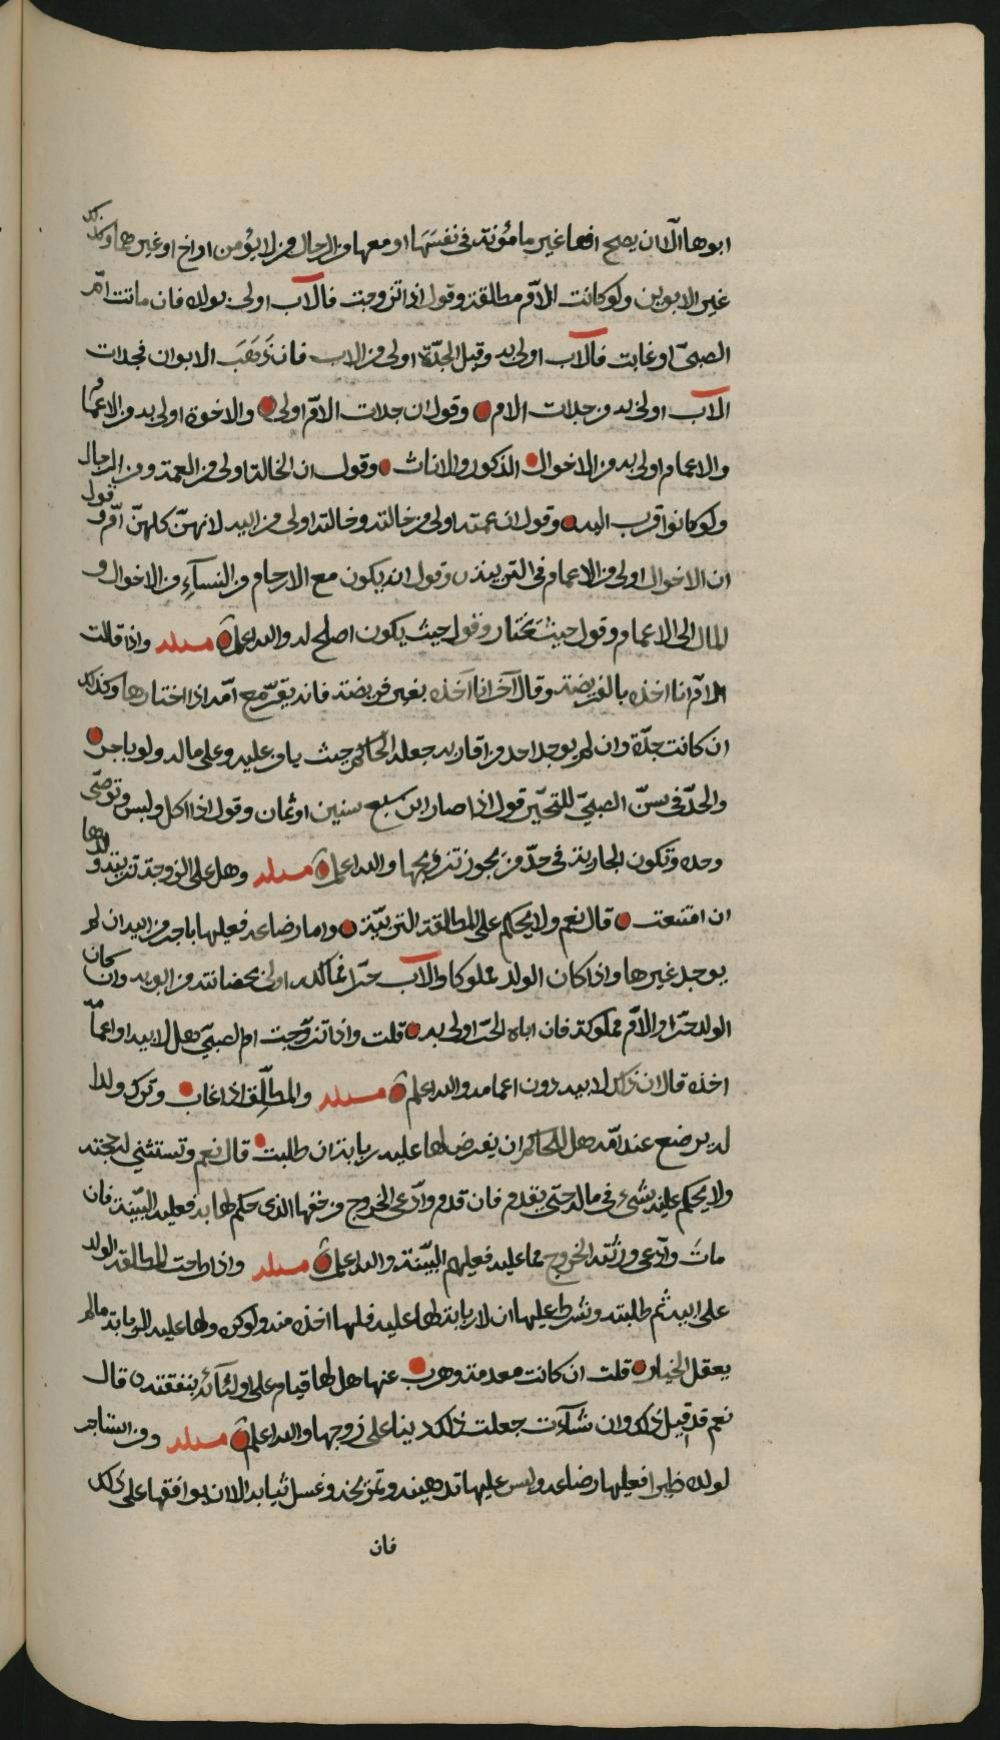 ابوها الا ان يصح انها غير مامؤنة في نفسها او معها من الرجال من لا يؤمن او اخ او غيرهما وكذلك
غير الابوين ولو كانت الام مطلقة وقول اذا تزوجت فالاب اولى بولده فان ماتت ام
الصبي او غابت فالاب اولى به وقيل الجدة اولى من الاب فان ذهب الابوان فجدات
الاب اولى به من جدات الام وقول ان جدات الام اولى والاخوة اولى به من الاعمام
والاعمام اولى به من الاخوال الذكور والاناث وقول ان الخالة اولى من العمة ومن الرجال
ولو كانوا اقرب اليه وقول ان عمته اولى من خالته وخالته اولى من ابيه لانهن كلهن ام وقول
ان الاخوال اولى من الاعمام في التربية وقول انه يكون مع الارحام من النساء من الاخوال و
المال الى الاعمام وقول حيث يختار وقول حيث يكون اصلح له والله اعلم مسئله واذا قالت
الام انا اخذه بالفريضة وقال آخر انا آخذه بغير فريضة فانه يقر مع امه اذا اختارها وكذلك
ان كانت جدة وان لم يوجد احد من اقاربه جعله الحاكم حيث يامن عليه وعلى ماله ولو باجر
والحد في سن الصبي للتخير قول اذا صار ابن سبع سنين او ثمان وقول اذا اكل ولبس وتوضى
وحده وتكون الجارية في حد من يجوز تزويجها والله اعلم مسئله وهل على الزوجة تربية ولدها
ان امتنعت قال نعم ولا يحكم على المطلقة التربية واما رضاعه فعليها باجر من ابيه ان لم
يوجد غيرها واذا كان الولد مملوكا والاب حرا فمالكه اولى بحضانته من ابويه وان كان
الولد حرا والام مملوكة فان اباه الحر اولى به قلت واذا تزوجت ام الصبي هل لابيه او اعمامه
اخذه قال ان ذلك لابيه دون اعمامه والله اعلم مسئله والمطلق اذا غاب وترك ولدا
له يرضع عند امه هل للحاكم ان يفرض لها عليه ربابة ان طلبت قال نعم وتستثني له حجته
ولا يحكم عليه بشيء في ماله حتى يقدم فان قدم وادعى الخروج من حقها الذي حكم لها به فعليه البينة فان
مات وادعى ورثته الخروج مما عليه فعليهم البينة والله اعلم مسئله واذا طرحت المطلقة الولد
على ابيه ثم طلبته وشرط عليها ان لا ربابة لها عليه فلها اخذه منه ولو كره ولها عليه الربابة ما لم
يعقل الخيار قلت ان كانت معدمة وهرب عنها هل لها قيام على اوليائه بنفقته قال
نعم قد قيل ذلك وان شآءت جعلت ذلك دينا على زوجها والله اعلم مسئله ومن استاجر
لولده ظيرا فعليها رضاعه وليس عليها تدهينه وتمريخه وغسل ثيابه الا ان يوافقها على ذلك
فان